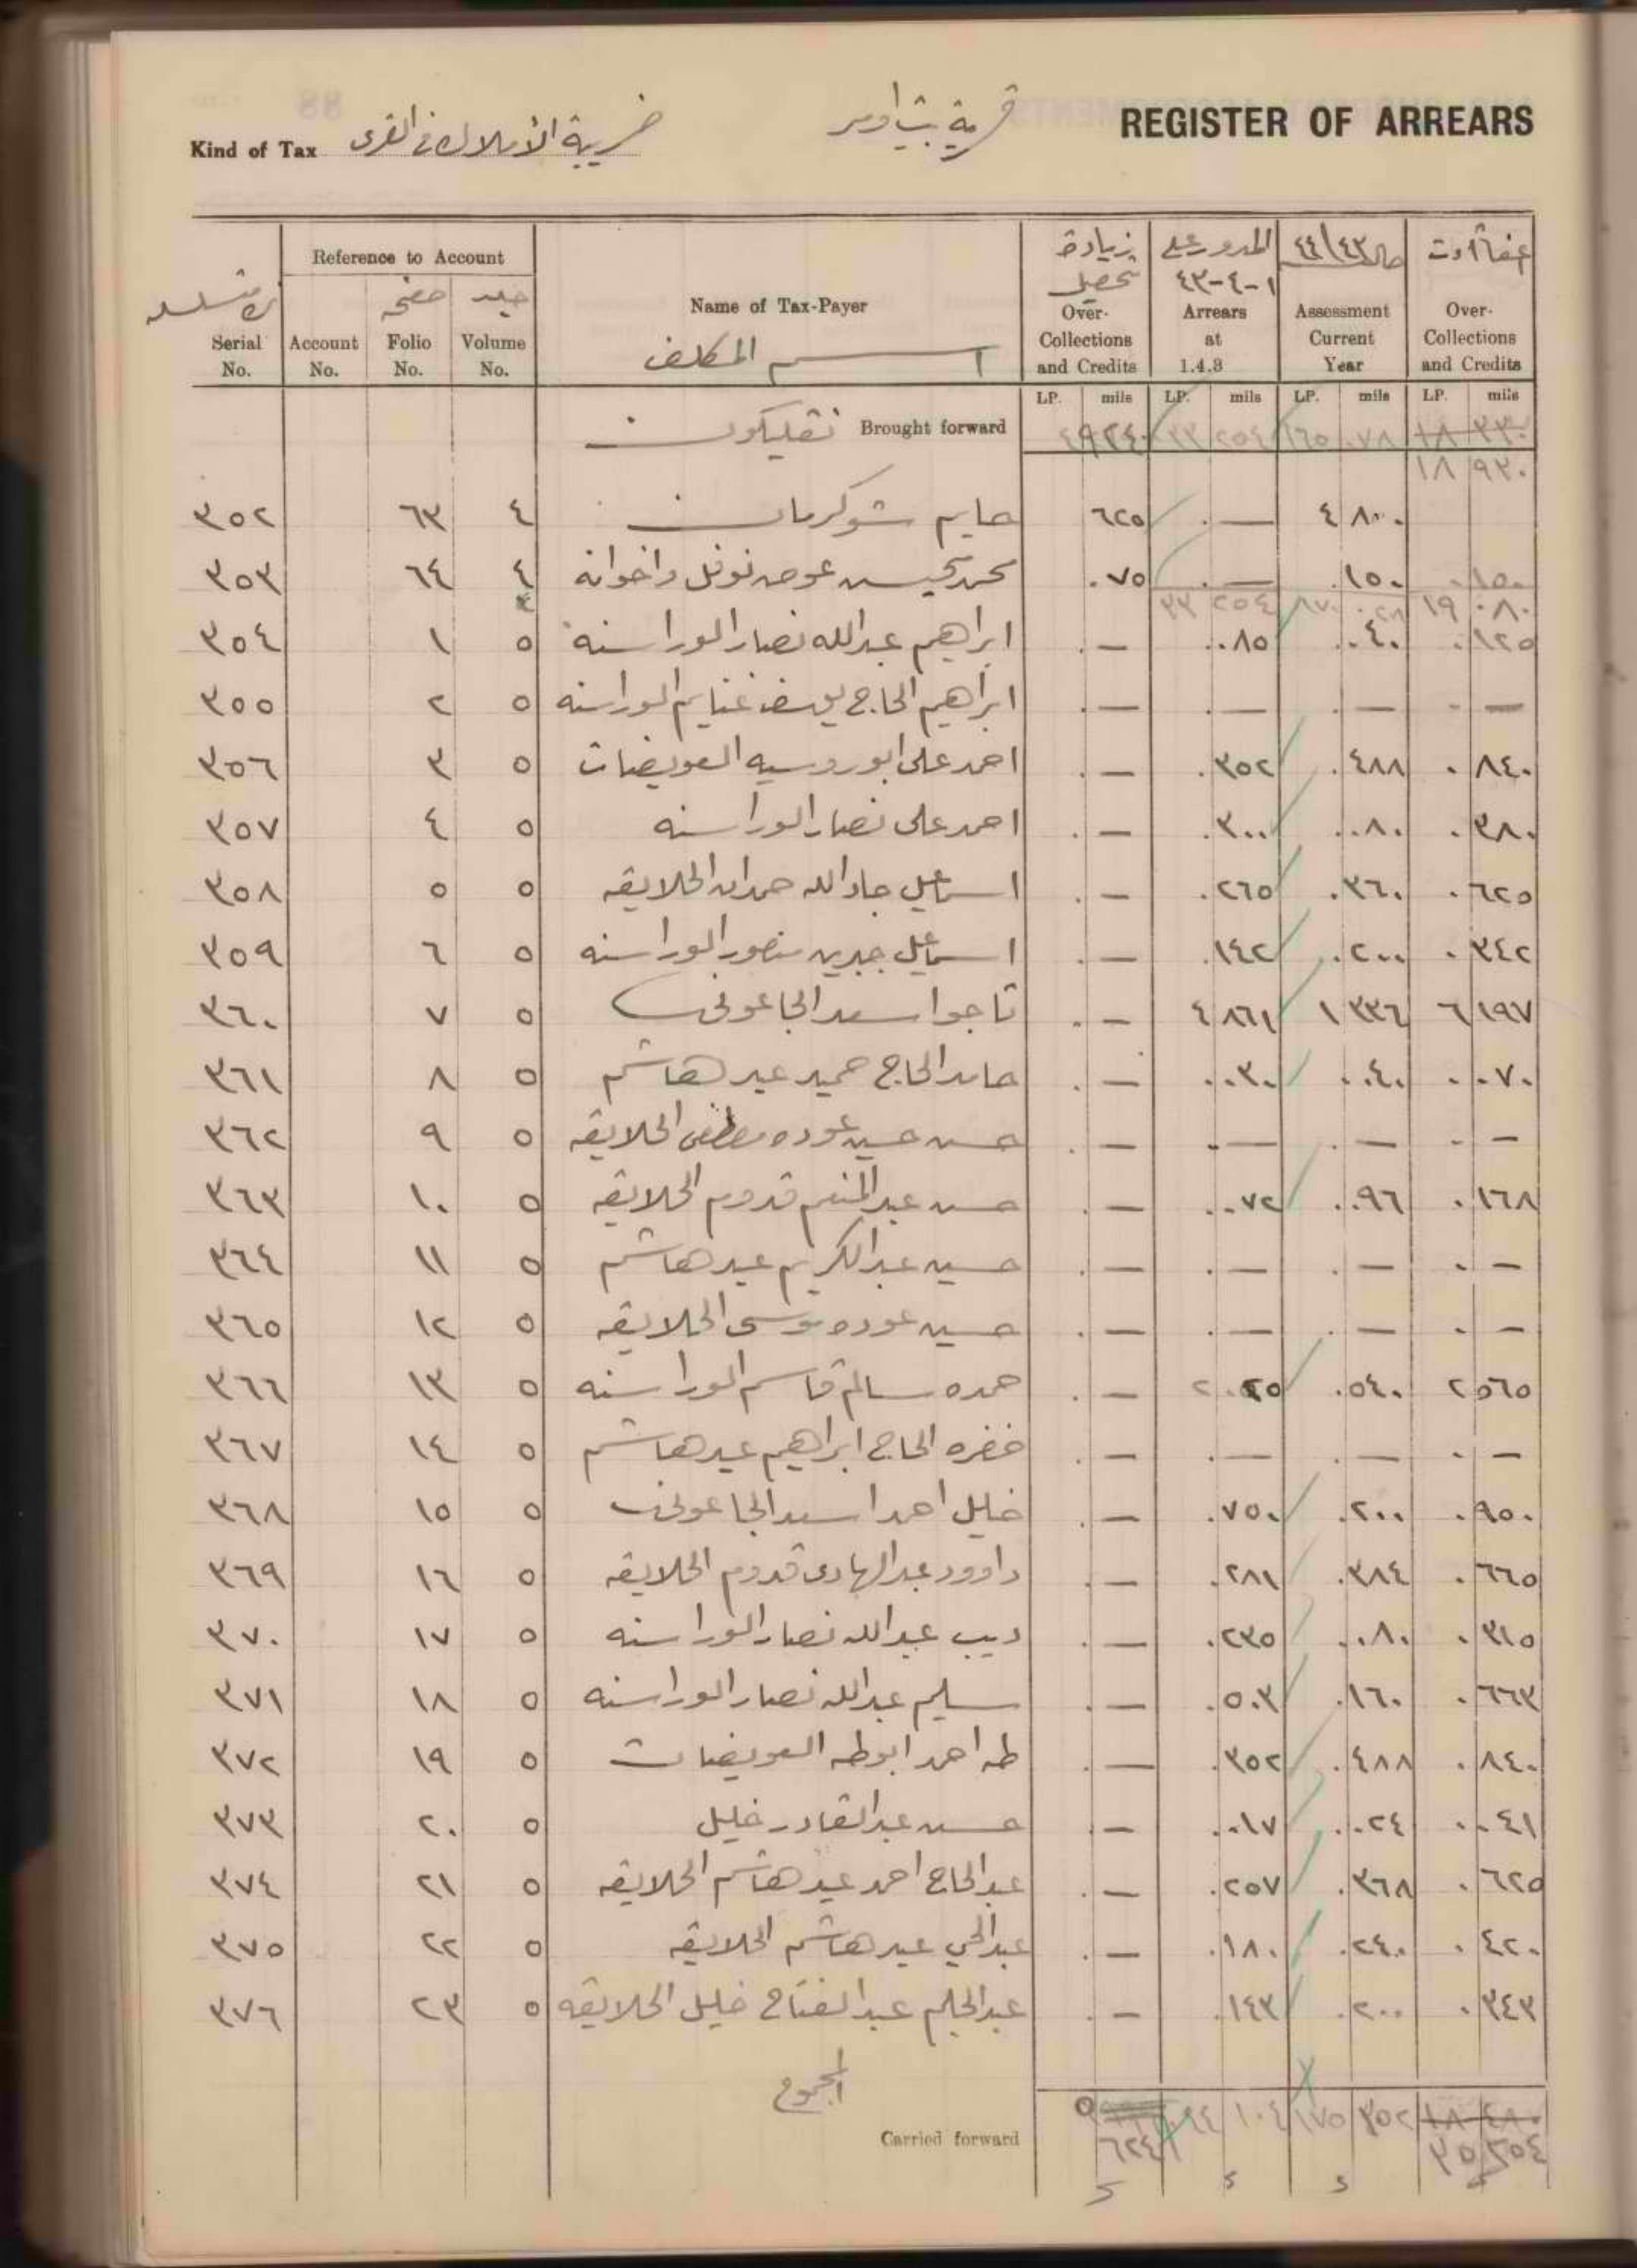 REGISTER OF ARREARS
قرية بيت أومر
Kind of Tax ضريبة الأملاك في القرى
Reference to Account
زيادة تحصيل المدور على ١-٤-٤٣ ٤٤/٤٣
صفحة جلد
Serial No. Account No. Folio No. Volume No. Name of Tax-Payer Over-Collections and Credits Arrears at 1.4.3 Assessment Current Year Over-Collections and Credits
اسم المكلف
LP. mils LP. mils LP. mils LP. mils
Brought forward ٣٣ ٢٥٤ ١٦٥ ٠٧٨ ١٨ ٣٣٠
١٨ ٩٣٠
٣٥٢ ٦٣ ٤ حايم شوكرمان ٦٢٥ . — ٤ ٨٠٠
٣٥٣ ٦٤ ٤ محمد يحيى عوض نوفل واخوانه ٠٧٥ . — .١٥٠ .١٥٠
٣٣ ٢٥٤ ١٩ ٠٨٠
٣٥٤ ١ ٥ ابراهيم عبدالله نصار الوراسنه . — .٠٨٥ .٠٤٠ .١٢٥
٣٥٥ ٢ ٥ ابراهيم الحاج يوسف غنايم الوراسنه . — . — . — . —
٣٥٦ ٣ ٥ احمد علي ابو روسيه العويضات . — .٣٥٢ .٤٨٨ .٨٤٠
٣٥٧ ٤ ٥ احمد علي نصار الوراسنه . — .٣٠٠ .٠٨٠ .٣٨٠
٣٥٨ ٥ ٥ اسماعيل جادالله حمدان الخلايقه . — .٢٦٥ .٣٦٠ .٦٢٥
٣٥٩ ٦ ٥ اسماعيل جبرين منصور الوراسنه . — .١٤٢ .٢٠٠ .٣٤٢
٣٦٠ ٧ ٥ تاجوا سعد الجاعوني . — ٤ ٨٦١ ١ ٣٣٦ ٦ ١٩٧
٣٦١ ٨ ٥ حامد الحاج حميد عيد هاشم . — .٠٣٠ .٠٤٠ .٠٧٠
٣٦٢ ٩ ٥ حسن حسين عوده مصطفى الخلايقه . — . — . — . —
٣٦٣ ١٠ ٥ حسن عبدالمنعم قدوم الخلايقه . — .٠٧٢ .٠٩٦ .١٦٨
٣٦٤ ١١ ٥ حسين عبدالكريم عيد هاشم . — . — . — . —
٣٦٥ ١٢ ٥ حسين عوده موسى الخلايقه . — . — . — . —
٣٦٦ ١٣ ٥ حمده سالم قاسم الوراسنه . — ٢ ٠٢٥ .٥٤٠ ٢ ٥٦٥
٣٦٧ ١٤ ٥ خضره الحاج ابراهيم عيد هاشم . — . — . — . —
٣٦٨ ١٥ ٥ خليل احمد اسعد الجاعوني . — .٧٥٠ .٢٠٠ .٩٥٠
٣٦٩ ١٦ ٥ داوود عبدالهادي قدوم الخلايقه . — .٢٨١ .٣٨٤ .٦٦٥
٣٧٠ ١٧ ٥ ديب عبدالله نصار الوراسنه . — .٢٣٥ .٠٨٠ .٣١٥
٣٧١ ١٨ ٥ سليم عبدالله نصار الوراسنه . — .٥٠٣ .١٦٠ .٦٦٣
٣٧٢ ١٩ ٥ طه احمد ابوطه العويضات . — .٣٥٢ .٤٨٨ .٨٤٠
٣٧٣ ٢٠ ٥ حسن عبدالقادر خليل . — .٠١٧ .٠٢٤ .٠٤١
٣٧٤ ٢١ ٥ عبدالحاج احمد عيد هاشم الخلايقه . — .٢٥٧ .٣٦٨ .٦٢٥
٣٧٥ ٢٢ ٥ عبدالحي عيد هاشم الخلايقه . — .١٨٠ .٢٤٠ .٤٢٠
٣٧٦ ٢٣ ٥ عبدالحليم عبدالفتاح خليل الخلايقه . — .١٤٣ .٢٠٠ .٣٤٣
المجموع
Carried forward ١٠٤ ١٧٥ ٣٥٢ ١٨ ٤٨٠
٣٥ ٢٥٤